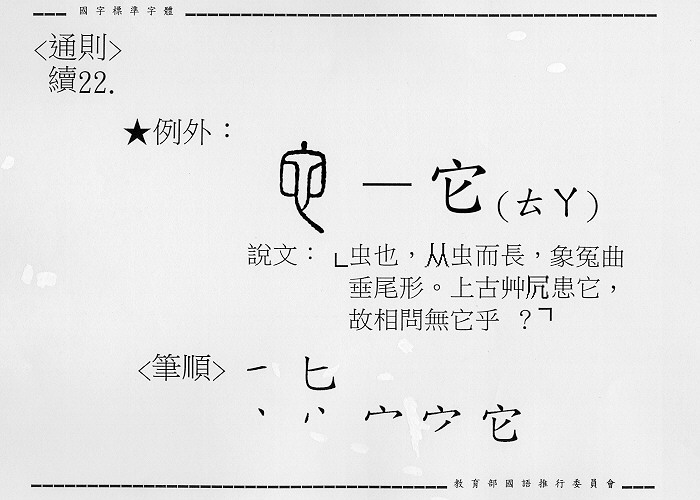 國字標準字體
<通則>
續22.
★例外：
它(ㄊㄚ)
說文：「虫也，从虫而長，象冤曲
垂尾形。上古艸凥患它，
故相問無它乎？」
<筆順> ㇀ 匕
丶 宀 它
教育部國語推行委員會